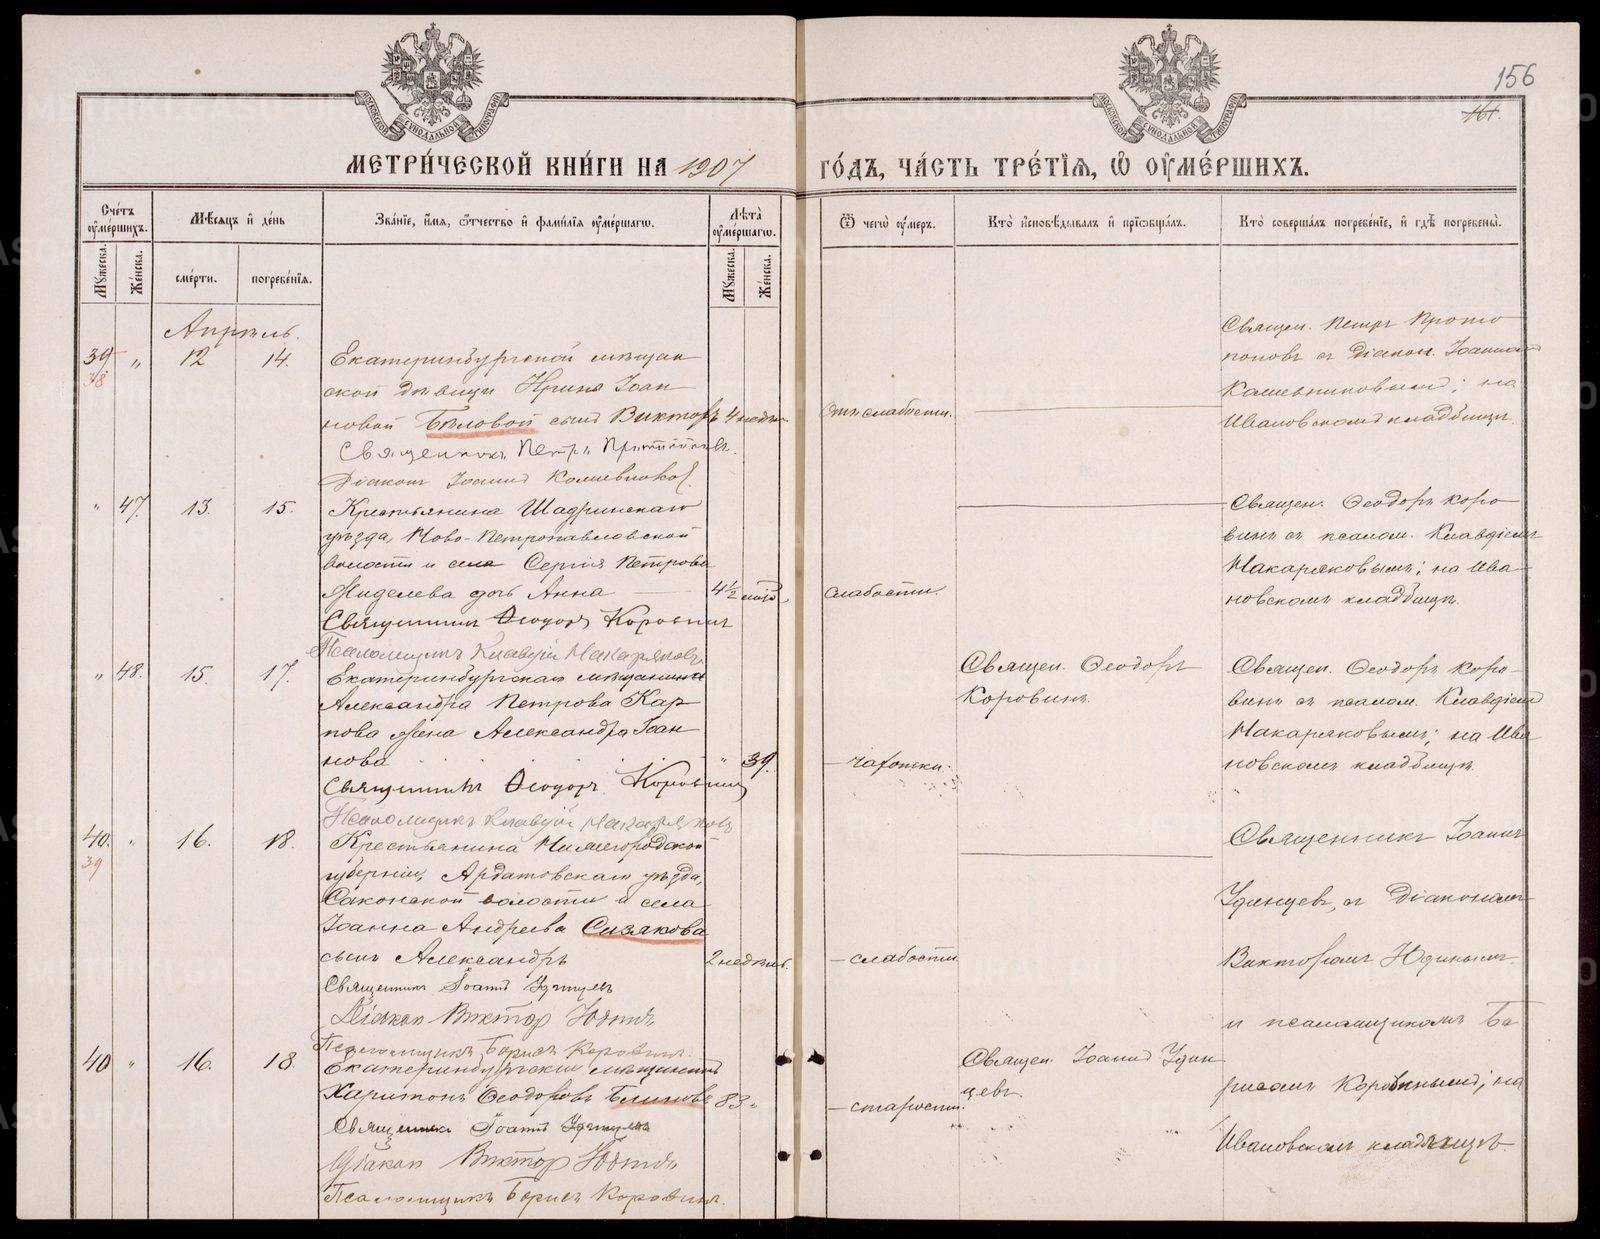 156
161.
МОСКОВСКОЙ СѴНОДАЛЬНОЙ ТИПОГРАФІИ
МОСКОВСКОЙ СѴНОДАЛЬНОЙ ТИПОГРАФІИ
МЕТРИ́ЧЕСКОЙ КНИ́ГИ НА 1907 ГО́ДЪ, ЧА́СТЬ ТРЕ́ТІЯ, Ѡ҆ ОУ҆МЕ́РШИХЪ.
Сче́тъ оу҆ме́ршихъ.
Мꙋжеска.
Же́нска.
Мѣ́сяцъ и҆ де́нь
сме́рти.
погребе́нїѧ.
Зва́нїе, и҆́мя, ѻ҆́тчество и҆ фами́лїя оу҆ме́ршагѡ.
Лѣ́та оу҆ме́ршагѡ.
Мꙋжеска.
Же́нска.
Ѿ чегѡ̀ оу҆́меръ.
Кто̀ и҆сповѣ́дывалъ и҆ прїѻбща́лъ.
Кто̀ соверша́лъ погребе́нїе, и҆ гдѣ̀ погребены̀.
Апрѣль.
39 " 12 14.
38
Екатеринбургской мѣщан
ской дѣвицы Ирины Іоан
новой Бѣловой сынъ Викторъ 4 недѣли
Священникъ Петръ Протопоповъ.
Діаконъ Іоаннъ
отъ слабости.
Священ. Петръ Прото
поповъ съ діакон. Іоанномъ
на
Ивановскомъ кладбищѣ.
" 47. 13. 15.
Крестьянина Шадринскаго
уѣзда, Ново-Петропавловской
волости и села Сергія Петрова
дочь Анна 4½
Священникъ Ѳеодоръ Коровинъ
Псаломщикъ Клавдій Макаряковъ
слабости.
Священ. Ѳеодоръ Коро
винъ съ псалом. Клавдіемъ
Макаряковымъ; на Ива
новскомъ кладбищѣ.
" 48. 15. 17.
Екатеринбургскаго мѣщанина
Александра Петрова Кар
пова жена Александра Іоан
нова " 39.
Священникъ Ѳеодоръ Коровинъ
Псаломщикъ Клавдій Макаряковъ
чахотки.
Священ. Ѳеодоръ
Коровинъ.
Священ. Ѳеодоръ Коро-
винъ съ псалом. Клавдіемъ
Макаряковымъ; на Ива
новскомъ кладбищѣ.
40. " 16. 18.
39
Крестьянина Нижегородской
губерніи, Ардатовскаго уѣзда,
Саконской волости и села
Іоанна Андреева Сизякова
сынъ Александръ 2 недѣль.
Священникъ Іоаннъ Удинцевъ
Діаконъ Викторъ Юдинъ
Псаломщикъ Борисъ Коровинъ.
слабости.
Священникъ Іоаннъ
Удинцев, съ Діакономъ
Викторомъ Юдинымъ
и псаломщикомъ Бо
рисомъ Коровинымъ; на
Ивановскомъ кладбищѣ.
40 " 16. 18.
Екатеринбургскій мѣщанинъ
Харитонъ Ѳеодоровъ Блиновъ 83 "
Священникъ Іоаннъ Удинцевъ
Діаконъ Викторъ Юдинъ
Псаломщикъ Борисъ Коровинъ.
старости.
Священ. Іоаннъ Удин
цевъ.
METRIKI.GASO-URAL.RU